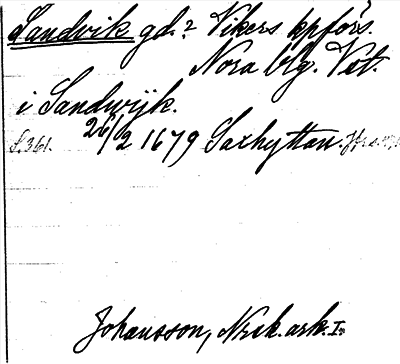 Sandvik gd.² Vikers kpförs.
Nora blg. Vstr.
i Sandwijk.
S. 361. 26/2 1679 Saxhyttan.
Johansson, Nrak. ark. I.